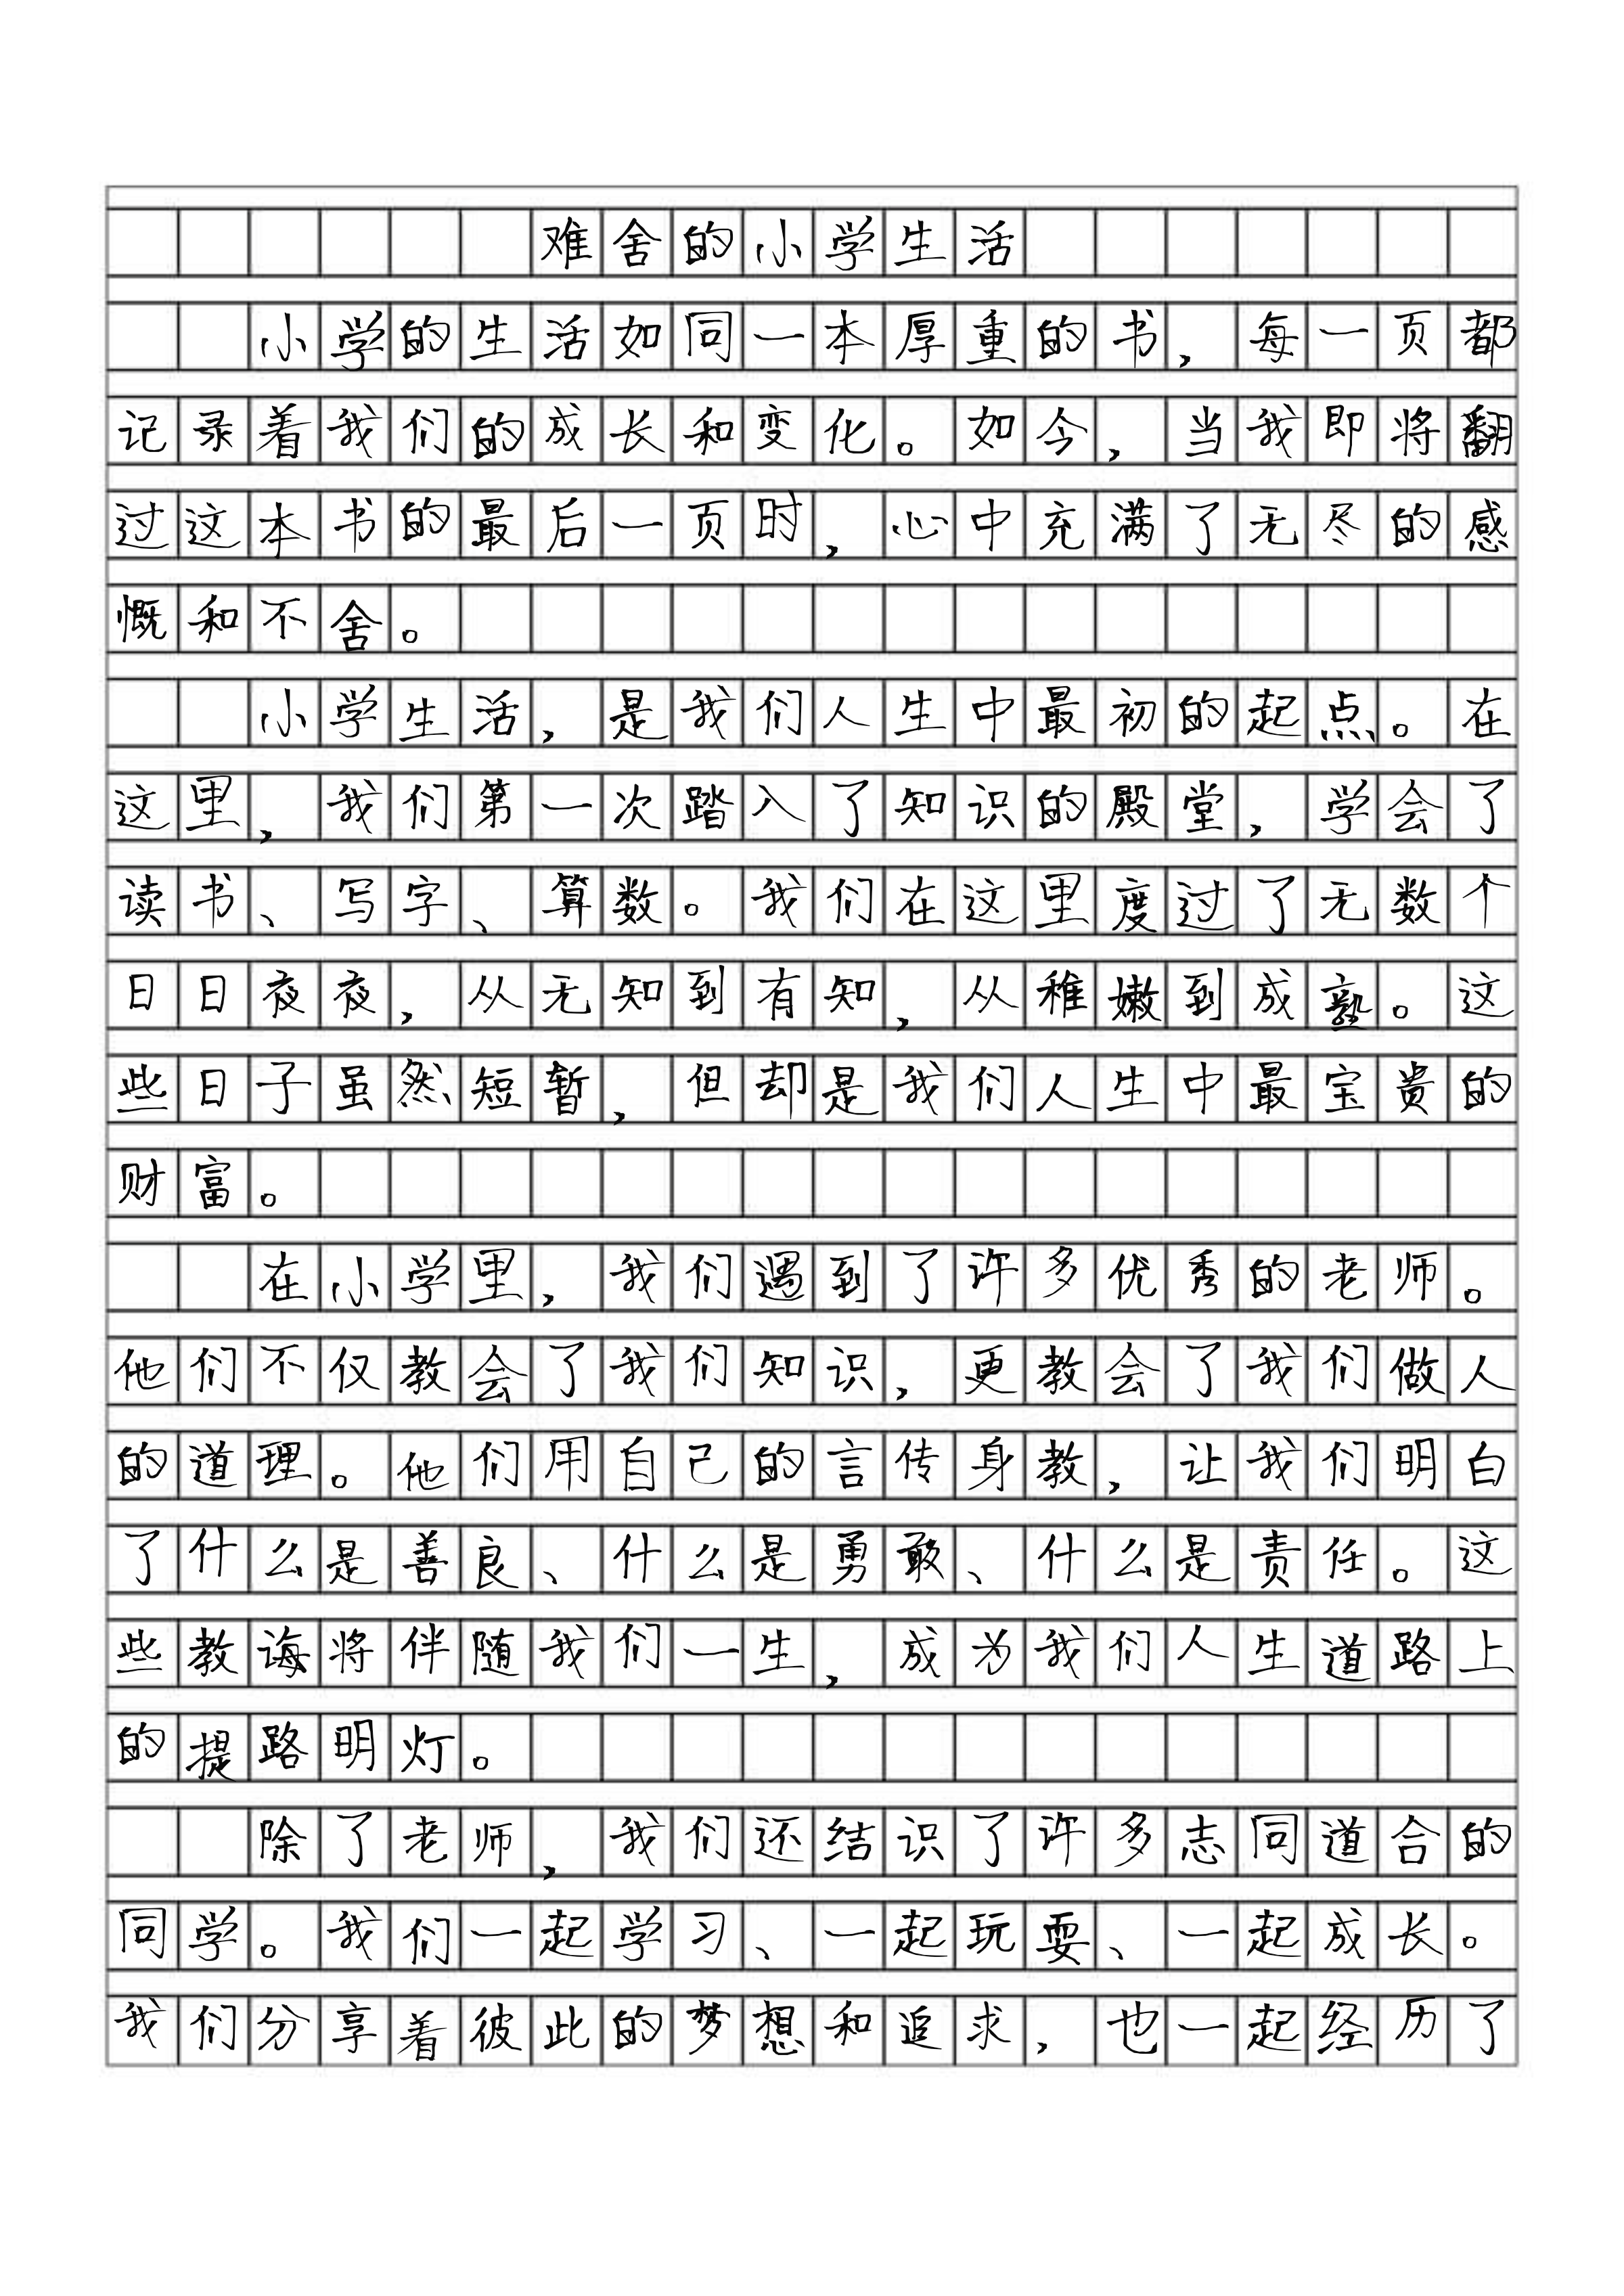 难舍的小学生活
小学的生活如同一本厚重的书，每一页都
记录着我们的成长和变化。如今，当我即将翻
过这本书的最后一页时，心中充满了无尽的感
慨和不舍。
小学生活，是我们人生中最初的起点。在
这里，我们第一次踏入了知识的殿堂，学会了
读书、写字、算数。我们在这里度过了无数个
日日夜夜，从无知到有知，从稚嫩到成熟。这
些日子虽然短暂，但却是我们人生中最宝贵的
财富。
在小学里，我们遇到了许多优秀的老师。
他们不仅教会了我们知识，更教会了我们做人
的道理。他们用自己的言传身教，让我们明白
了什么是善良、什么是勇敢、什么是责任。这
些教诲将伴随我们一生，成为我们人生道路上
的提路明灯。
除了老师，我们还结识了许多志同道合的
同学。我们一起学习、一起玩耍、一起成长。
我们分享着彼此的梦想和追求，也一起经历了